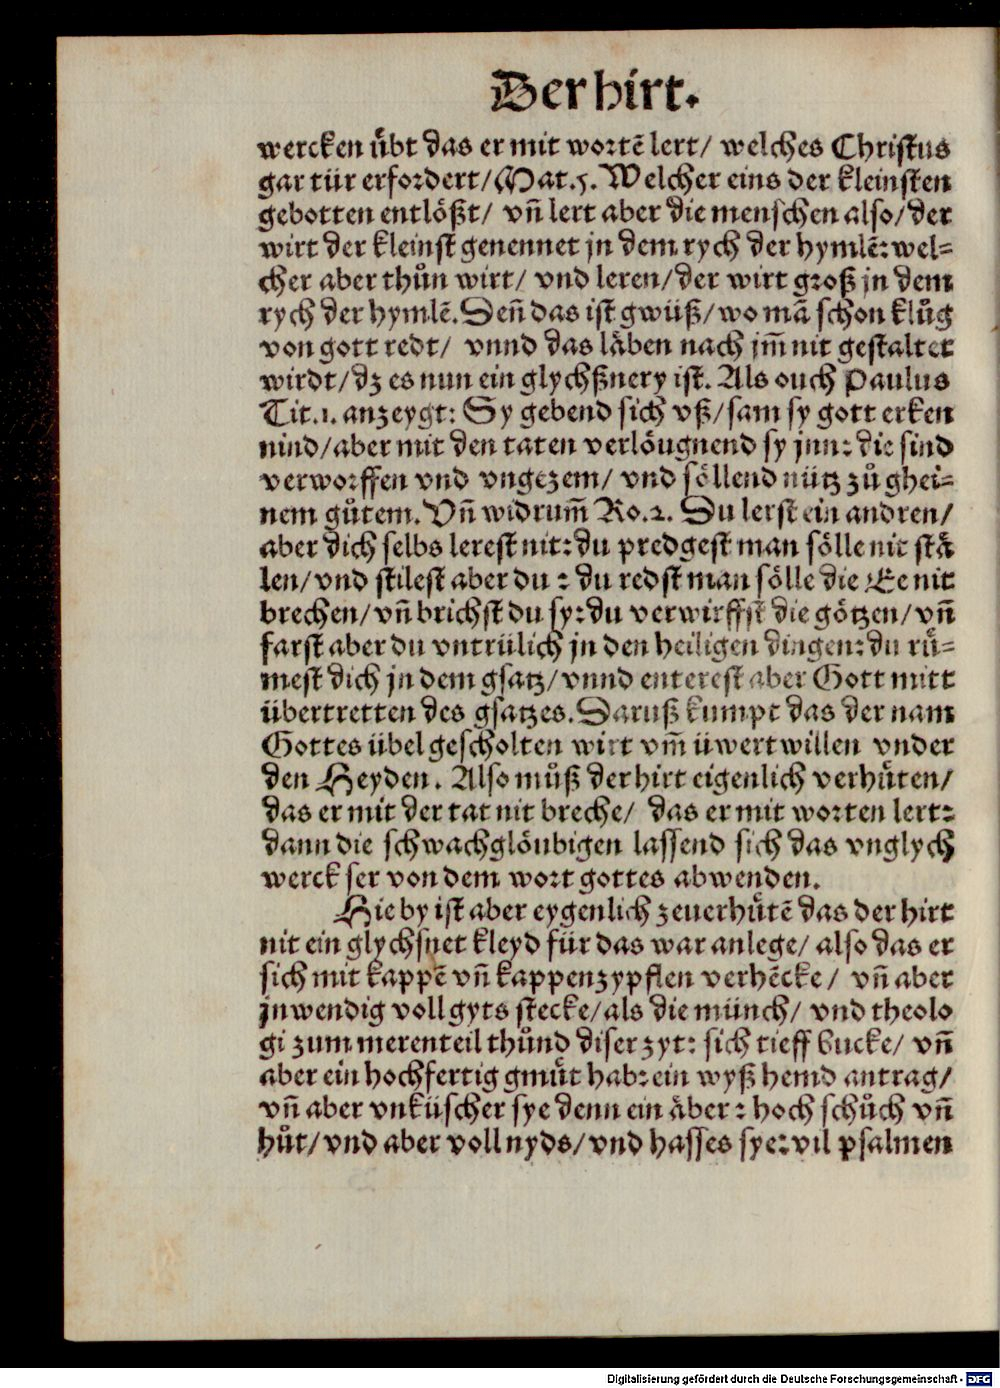 Der hirt.
wercken uͤbt das er mit wortē lert/ welches Christus
gar tür erfordert/ Mat.5. Welcher eins der kleinsten
gebotten entlößt/ vn̄ lert aber die menschen also/ der
wirt der kleinst genennet jn dem rych der hymlē: wel⸗
cher aber thuͦn wirt/ vnd leren/ der wirt groß jn dem
rych der hymlē. Den̄ das ist gwüß/ wo mā schon kluͦg
von gott redt/ vnnd das låben nach jm̄ nit gestaltet
wirdt/ dz es nun ein glychßnery ist. Als ouch Paulus
Tit.1. anzeygt: Sy gebend sich vß/ sam sy gott erken
nind/ aber mit den taten verlöugnend sy jnn: die sind
verworffen vnd vngezem/ vnd söllend nütz zuͦ ghei⸗
nem guͦtem. Vn̄ widrum̄ Ro.2. Du lerst ein andren/
aber dich selbs lerest nit: du predgest man sölle nit stå
len/ vnd stilest aber du: du redst man sölle die Ee nit
brechen/ vn̄ brichst du sy: du verwirffst die götzen/ vn̄
farst aber du vntrülich jn den heiligen dingen: du ruͤ⸗
mest dich jn dem gsatz/ vnnd enterest aber Gott mitt
übertretten des gsatzes. Daruß kumpt das der nam
Gottes übel gescholten wirt vm̄ üwert willen vnder
den Heyden. Also muͦß der hirt eigenlich verhuͤten/
das er mit der tat nit breche/ das er mit worten lert:
dann die schwachglöubigen lassend sich das vnglych
werck ser von dem wort gottes abwenden.
Hie by ist aber eygenlich zeuerhuͤtē das der hirt
nit ein glychsnet kleyd für das war anlege/ also das er
sich mit kappē vn̄ kappenzypflen verhēcke/ vn̄ aber
jnwendig voll gyts stecke/ als die münch/ vnd theolo
gi zum merenteil thuͦnd diser zyt: sich tieff bucke/ vn̄
aber ein hochfertig gmuͤt hab: ein wyß hemd antrag/
vn̄ aber vnküscher sye denn ein åber: hoch schuͦch vn̄
huͤt/ vnd aber voll nyds/ vnd hasses sye: vil psalmen
Digitalisierung gefördert durch die Deutsche Forschungsgemeinschaft - DFG